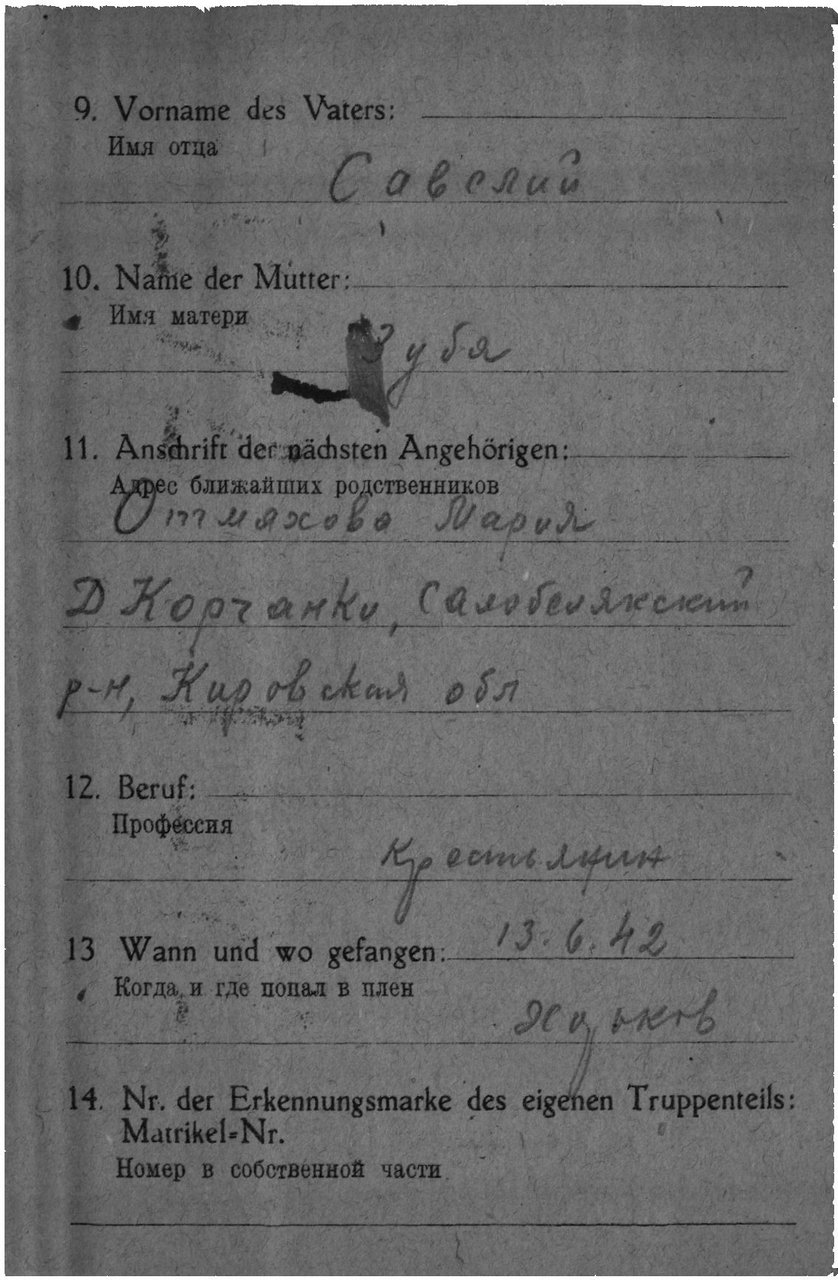 9. Vorname des Vaters:
Имя отца
Савелий
10. Name der Mutter:
Имя матери
Зубя
11. Anschrift der nächsten Angehörigen:
Адрес ближайших родственников
Отмахова Мария
Д Корчанки, Салобелякский
р-н, Кировская обл
12. Beruf:
Профессия
Крестьянин
13 Wann und wo gefangen: 13.6.42
Когда и где попал в плен
Харьков
14. Nr. der Erkennungsmarke des eigenen Truppenteils:
Matrikel=Nr.
Номер в собственной части